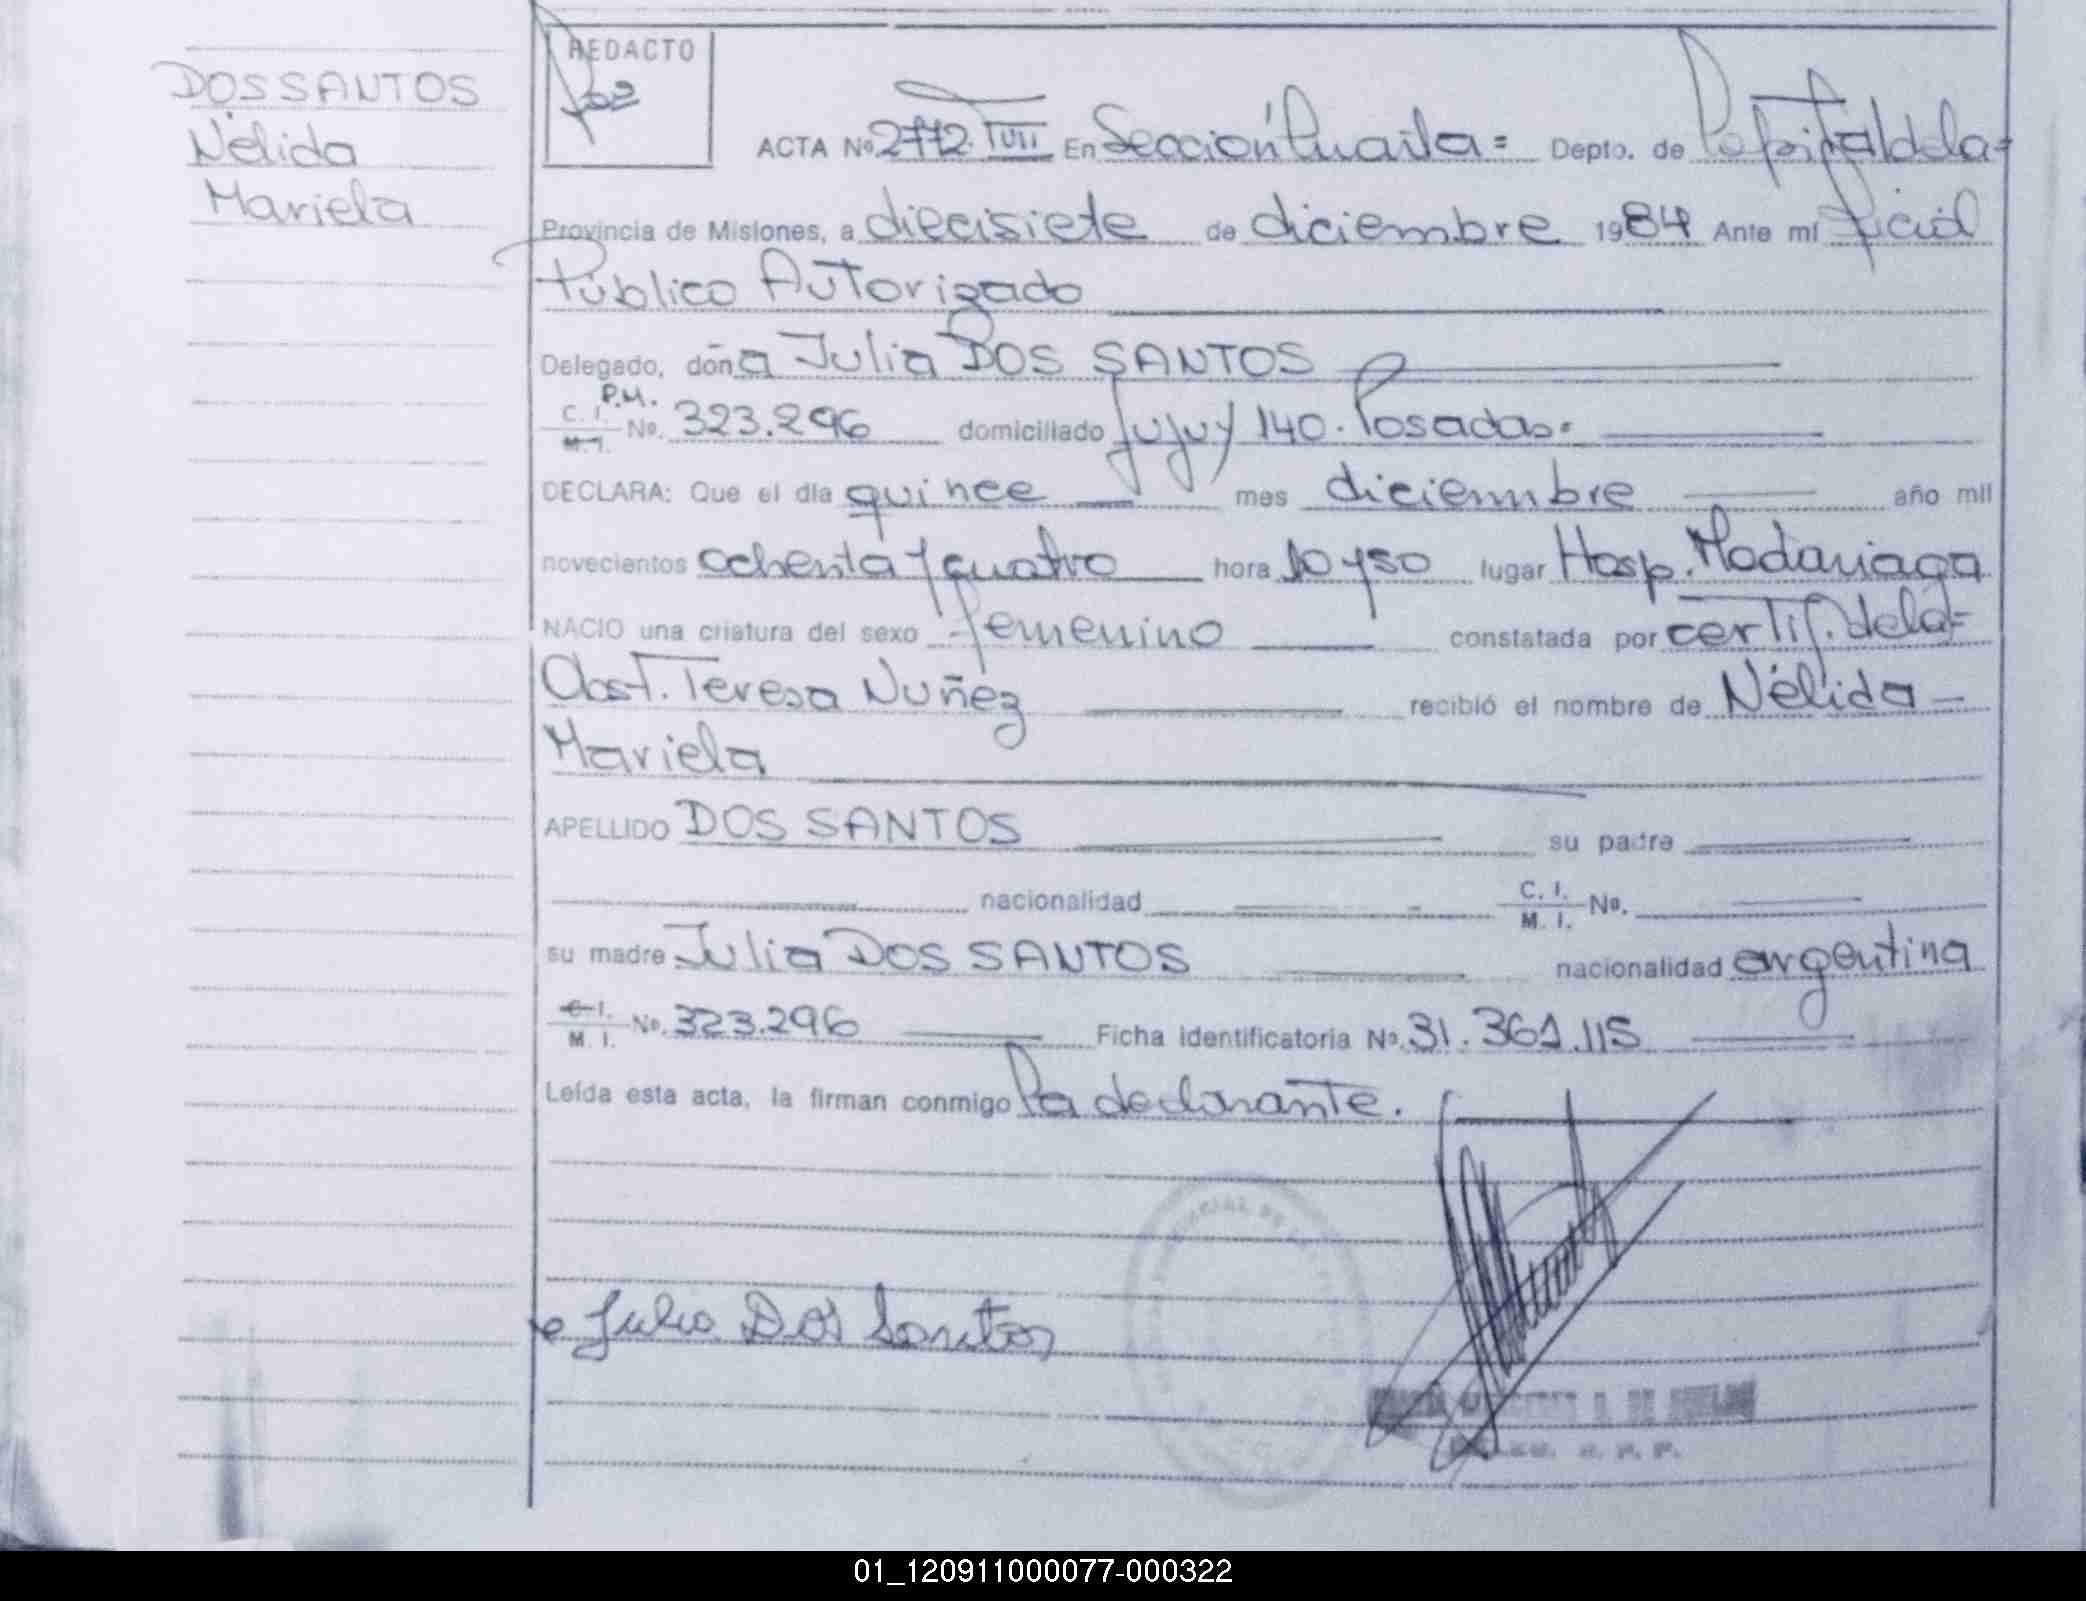 DOS SANTOS
Nélida
Mariela
REDACTO
ACTA Nº 2772 TVII En Sección Cuarta = Depto. de la Capital de la =
Provincia de Misiones, a diecisiete de diciembre 1984 Ante mí Oficial
Público Autorizado
Delegado, doña Julia DOS SANTOS
P.M.
C. I.
M. I. Nº. 323.296 domiciliado Jujuy 140. Posadas.
DECLARA: Que el día quince mes diciembre año mil
novecientos ochenta y cuatro hora 10 y 50 lugar Hosp. Madariaga
NACIO una criatura del sexo femenino constatada por certif. de la =
Obst. Teresa Nuñez recibió el nombre de Nélida
Mariela
APELLIDO DOS SANTOS su padre
nacionalidad C. I.
M. I. Nº.
su madre Julia DOS SANTOS nacionalidad argentina
C. I.
M. I. Nº. 323.296 Ficha identificatoria Nº. 31.361.115
Leída esta acta, la firman conmigo la declarante.
Julia Dos Santos
01_120911000077-000322